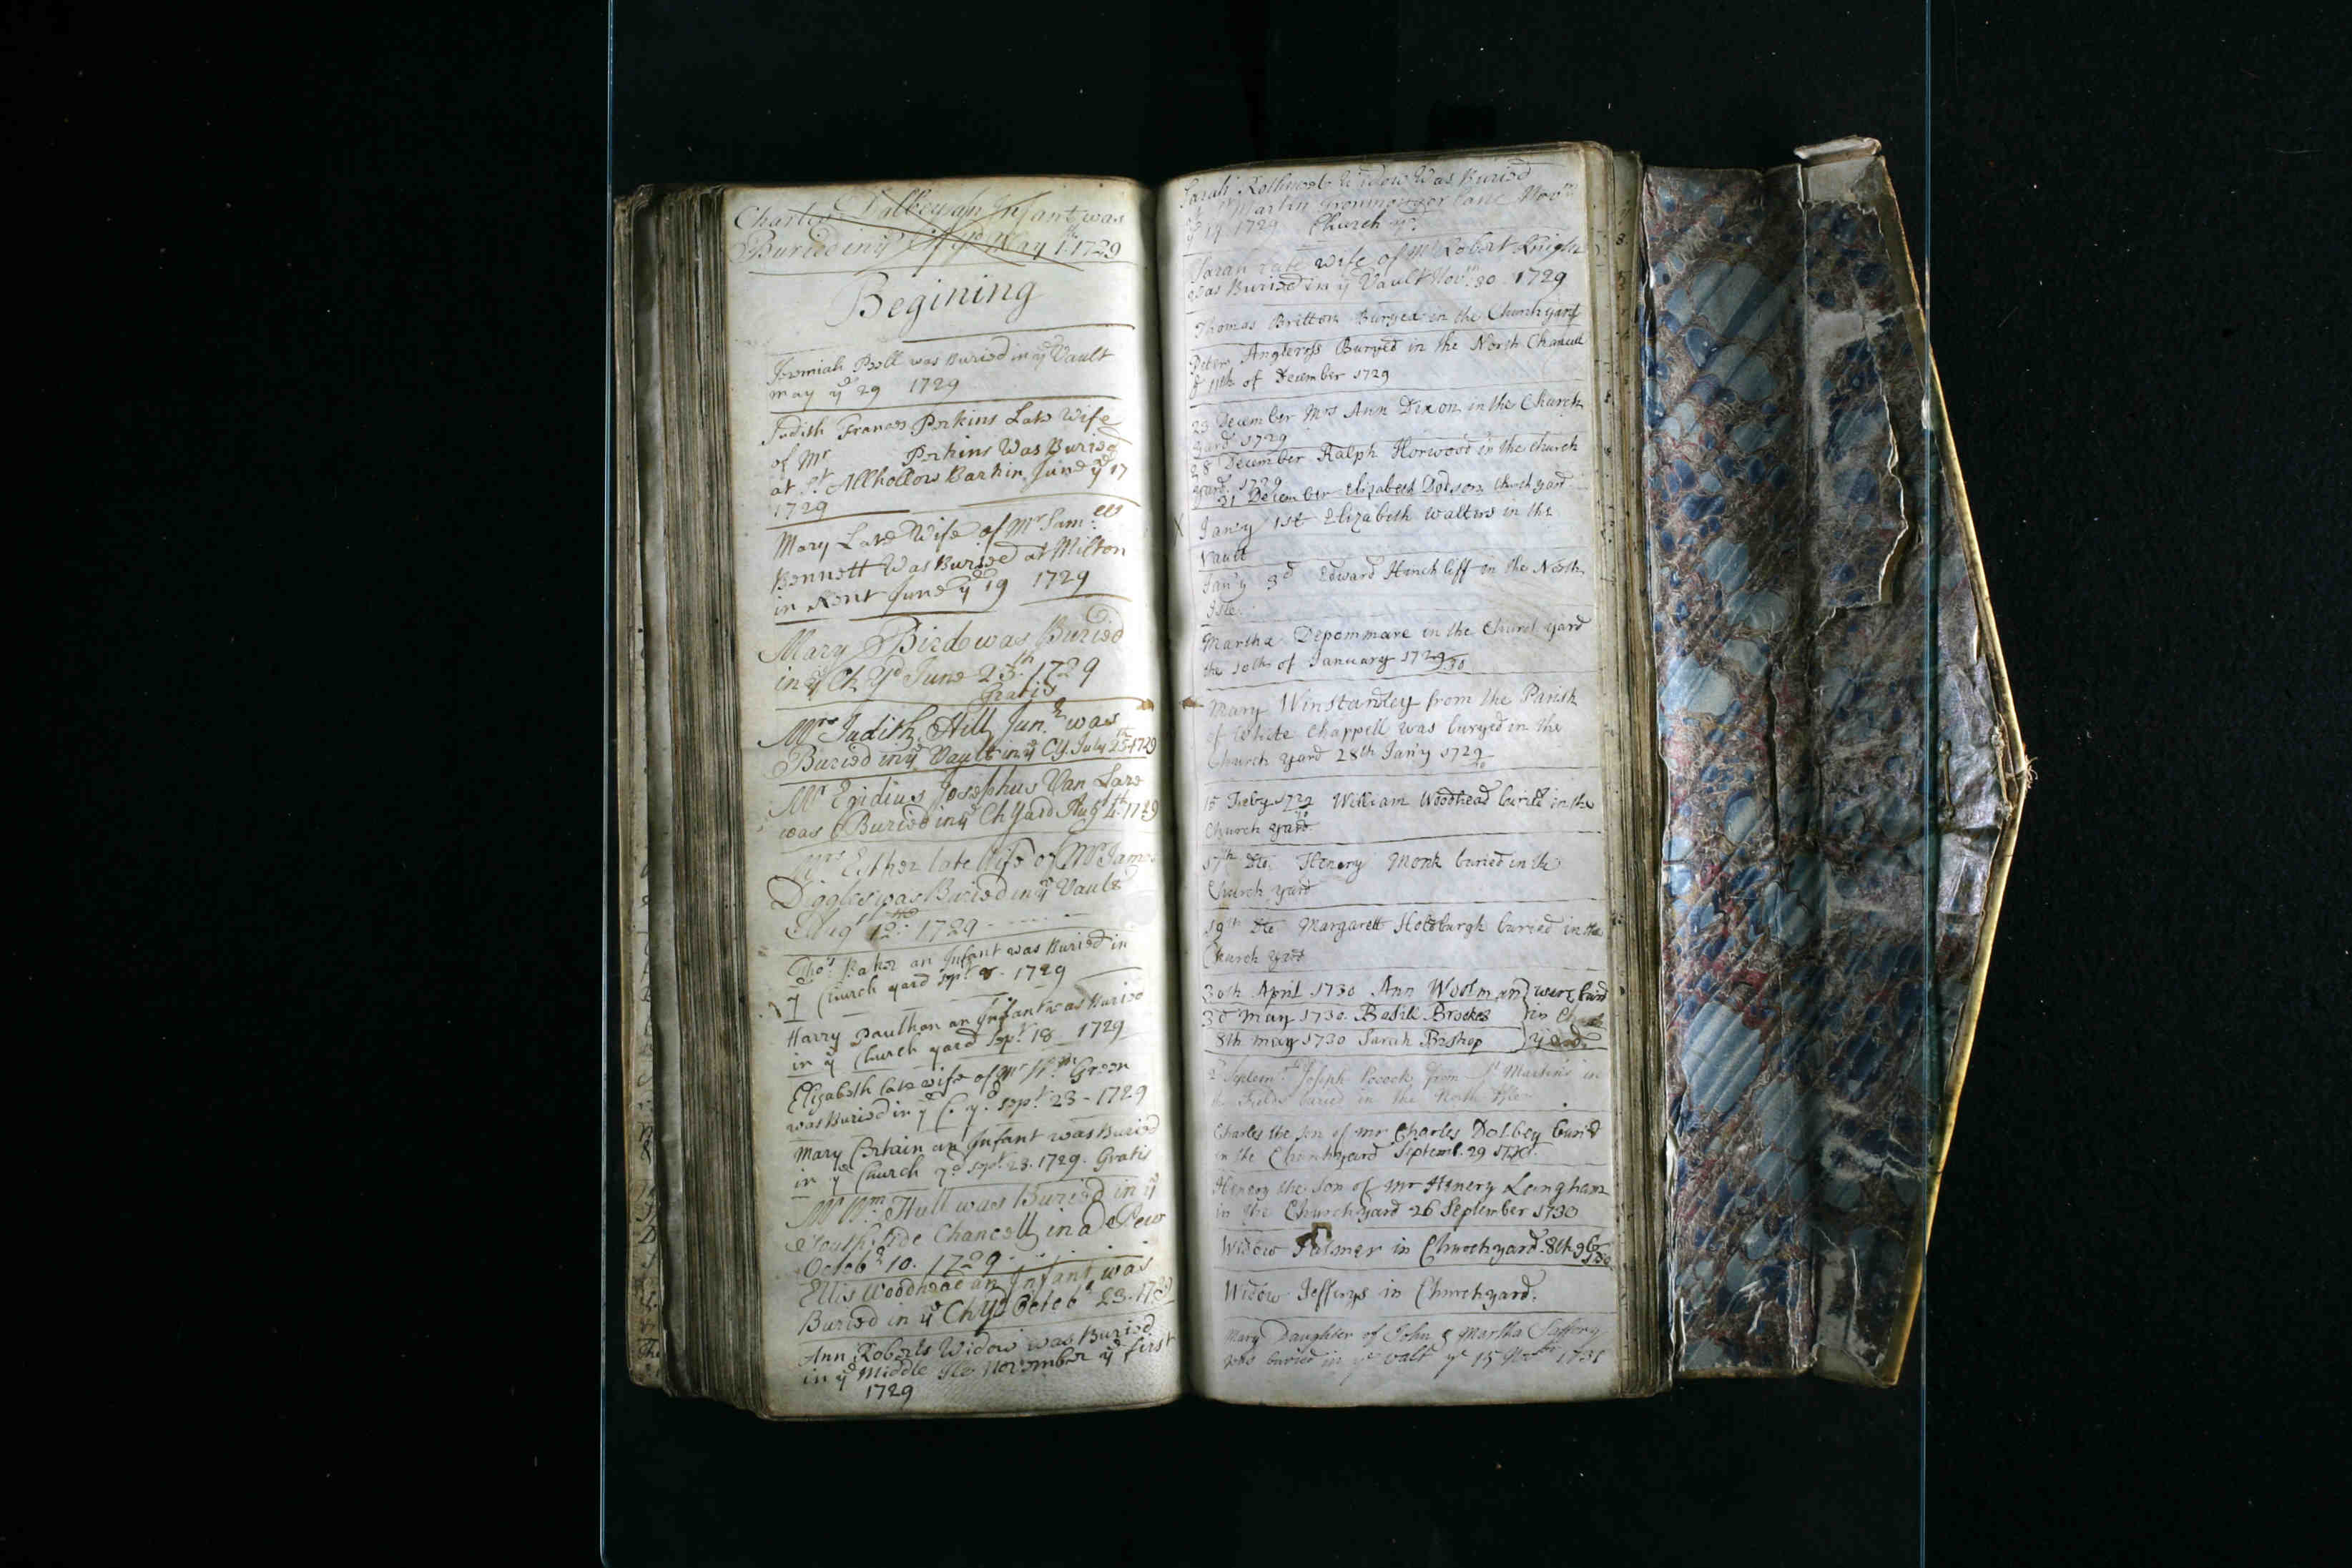 Charles Dalbey an Infant was
Buried in ye Ch yd May 1st 1729
Begining
Jeremiah Bell was Buried in ye Vault
may ye 29 1729
Judith Frances Perkins Late Wife
of Mr Perkins Was Buried
at St Allhollows Barkin June ye 17
1729
Mary Late Wife of Mr Samll
Bennett Was Buried at Milton
in Kent June ye 19 1729
Mary Bird was Buried
in ye Ch Yd June 23th 1729
Gratis
Mrs Judith Hill Junr was
Buried in ye Vault in ye CY. July 25th 1729
Mr Egidius Josephus Van Lare
was Buried in ye Ch Yard Augt 4th 1729
Mrs Esther late Wife of Mr James
Diggles was Buried in ye Vault
Augt 12th 1729
Thos Baker an Infant was Buried in
ye Church yard Sept 8 1729
Harry Paulhan an Infant was Buried
in ye Church yard Sept 18 1729
Elizabeth late wife of Mr Wm Green
was Buried in ye C. yd Sept 23 - 1729
Mary Certain an Infant was Buried
in ye Church yd Sept 28. 1729. Gratis
Mr Wm Hull was Buried in ye
South side Chancell in a Pew
Octobr 10. 1729
Ellis Woodhead an Infant was
Buried in ye Ch yd Octobr 23. 1729
Ann Roberts Widow was Buried
in ye Middle Ile November ye first
1729
Sarah Widow Was Buried
at St Martin Ironmonger lane Novbr
ye 19 1729 Church yd
Sarah late wife of Mr Robert Knight
was Buried in ye Vault Novbr 30 1729
Thomas Britton Buryed in the Churchyard
Peter Buryed in the North Chancell
ye 11th of December 1729
23 December Mrs Ann Dixon in the Church
yard 1729
28 December Ralph Horwood in the Church
yard. 1729
31 December Elizabeth Dodson Church yard
X Jan'y 1st Elizabeth Walters in the
Vault
Jan'y 3d Edward Hinchliff in the North
Isle
Martha Depommare in the Church yard
the 10th of January 1729/30
Mary Winstandley from the Parish
of White Chappell was buryed in the
Church yard 28th Jan'y 1729/30
15 Feby 1729/30 William Woodhead buried in the
Church yard
17th do Henery Monk buried in the
Church yard
19th do Margarett Holdburgh buried in the
Church yard
30th April 1730 Ann Woolman } were buried
3d May 1730 Basill Brookes } in Church
8th may 1730 Sarah Bishop } yard
2d Septemr Joseph Pocock from St Martin's in
the Fields buried in the North Isle
Charles the Son of mr Charles Dolbey buried
in the Churchyard Septemb. 29 1730.
Henery the Son of mr Henery Langham
in the Church yard 26 September 1730
Widow Palmer in Churchyard. 8th 9br 1730
Widow Jefferys in Churchyard.
Mary Daughter of John & Martha Saffory
was buried in ye valt ye 15 Novbr 1731